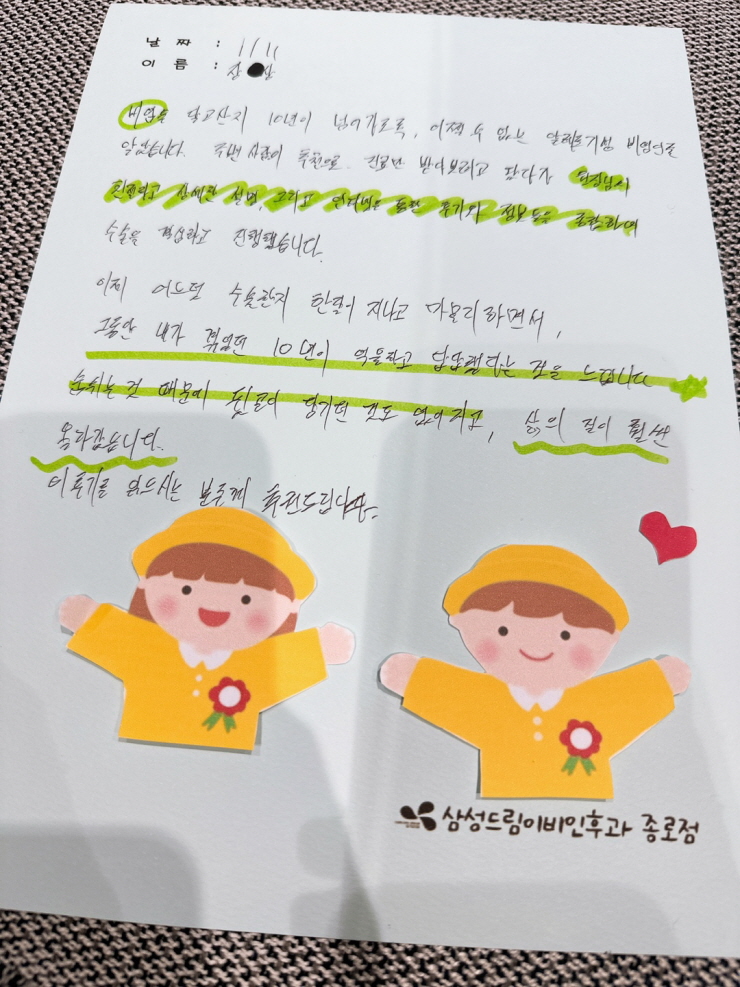 날 짜 : 1/11
이 름 : 장 상
비염을 달고산지 10년이 넘어가도록, 어쩔 수 없는 알레르기성 비염인줄
알았습니다. 주변 사람이 추천으로 진료만 받아보려고 왔다가 원장님의
친절하고 상세한 설명, 그리고 인터넷을 통한 후기와 정보들을 종합하여
수술을 결심하고 진행했습니다.
이제 어느덧 수술한지 한달이 지나고 마무리하면서,
그동안 내가 겪었던 10년이 억울하고 답답했다는 것을 느낍니다
숨쉬는 것 때문에 뒷골이 당기던 것도 없어지고, 삶의 질이 훨씬
올라갔습니다.
이 후기를 읽으시는 분들께 추천드립니다.
삼성드림이비인후과 종로점